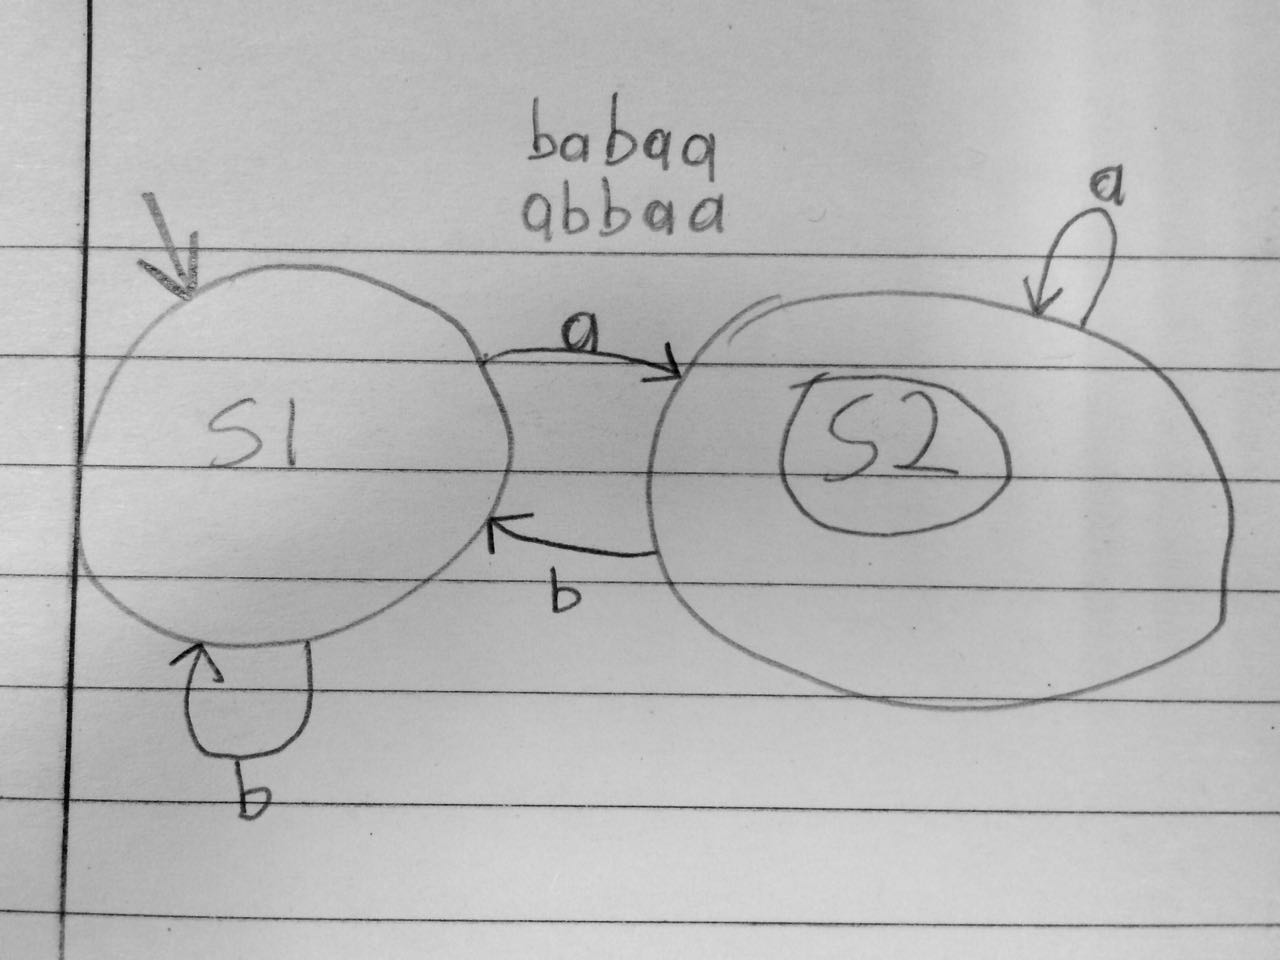 babaa
abbaa
a
a
S1
S2
b
b